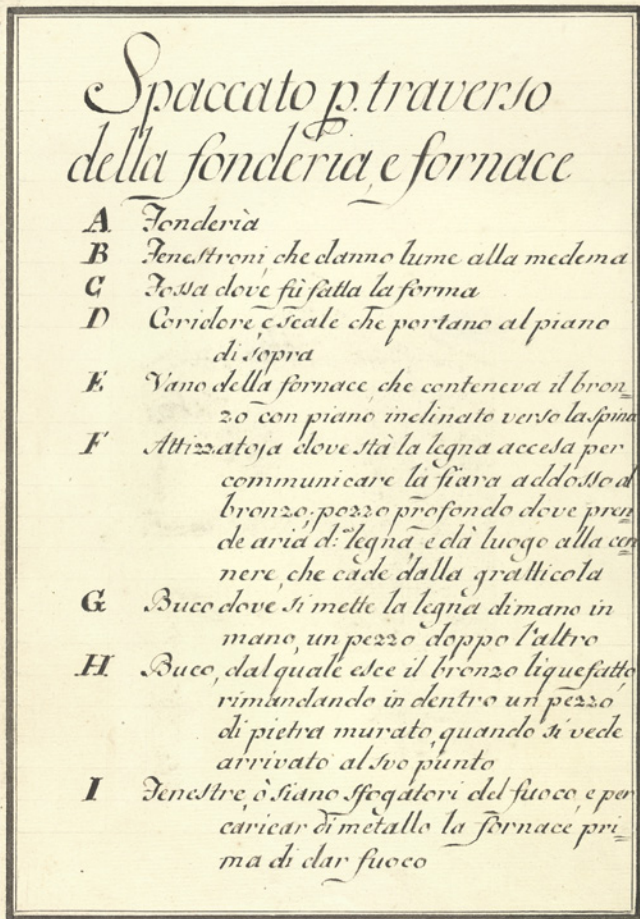 Spaccato p. traverso
della fonderia, e fornace
A Fonderia
B Fenestroni, che danno lume alla medema
C Fossa dove fù fatta la forma
D Coridore, e scale che portano al piano
di sopra
E Vano della fornace, che conteneva il bron=
zo con piano inclinato verso la spina
F Attizzatoja dove stà la legna accesa per
communicare la fiara addosso al
bronzo; pozzo profondo dove pren=
de aria d:ᵃ legna, e dà luogo alla cen=
nere, che cade dalla gratticola
G Buco dove si mette la legna di mano in
mano, un pezzo doppo l'altro
H Buco, dal quale esce il bronzo liquefatto,
rimandando in dentro un pezzo
di pietra murato, quando si vede
arrivato al svo punto
I Fenestre, ò siano sfogatori del fuoco, e per
caricar di metallo la fornace pri=
ma di dar fuoco